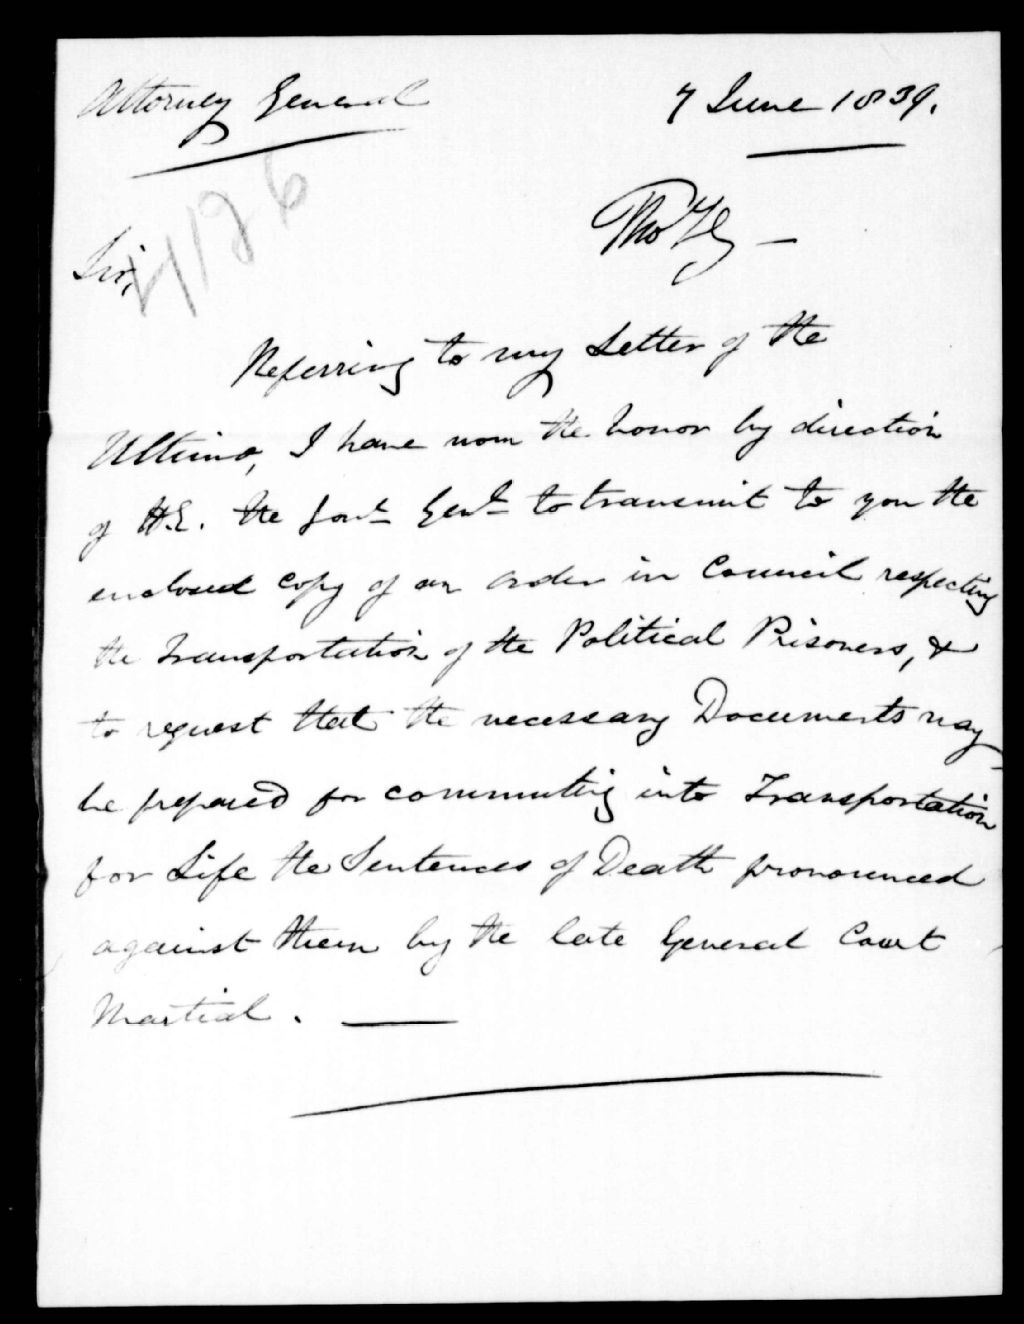 Attorney General
7 June 1839.
4126
Sir,
Referring to my Letter of the
Ultimo, I have now the honor by direction
of H.E. the Govr. Genl. to transmit to you the
enclosed copy of an order in Council respecting
the Transportation of the Political Prisoners, &
to request that the necessary Documents may
be prepared for commuting into Transportation
for Life the Sentences of Death pronounced
against them by the late General Court
Martial.